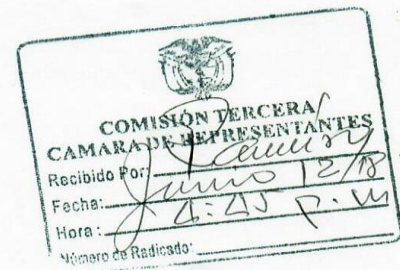 COMISIÓN TERCERA
CAMARA DE REPRESENTANTES
Recibido Por: Ramiro
Fecha: Junio 12/18
Hora: 4:45 p.m
Número de Radicado: